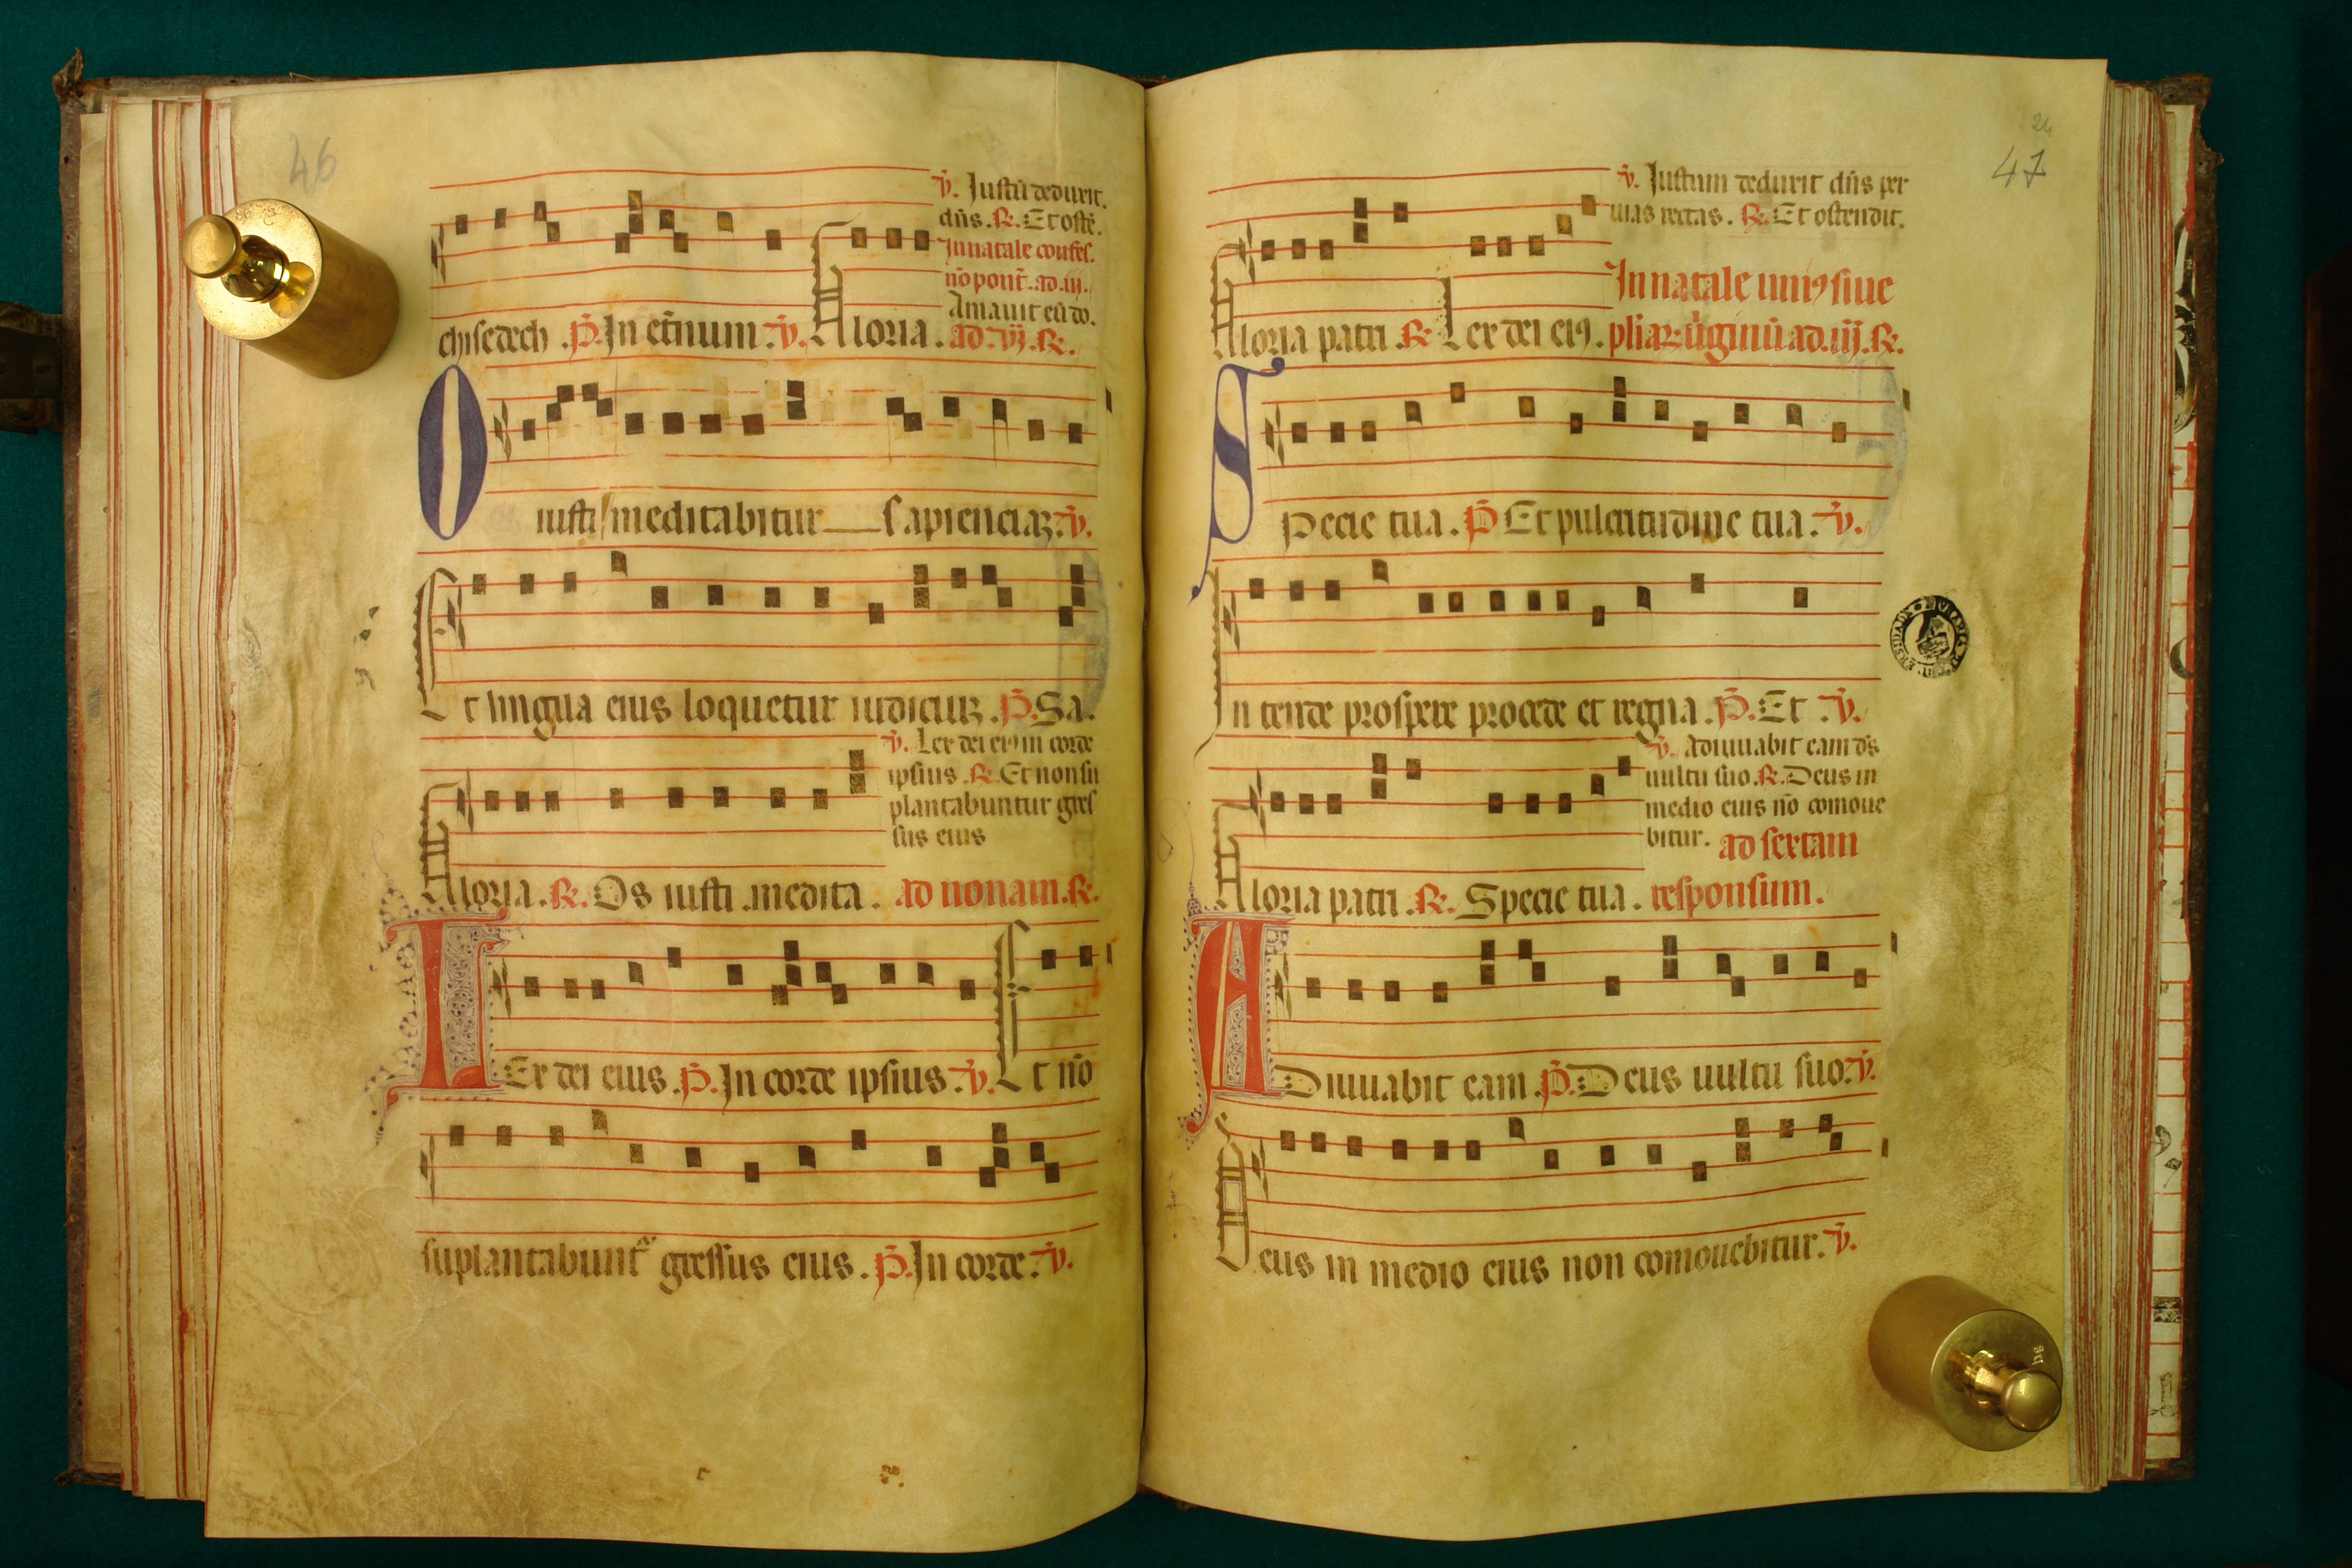 46
℣. Iustū deduxit.
dñs. ℟. Et ostē.
In natale confes.
nō pont̄. ad .iij.
Amauit eū do.
chisedech . P̄. In et̄num . ℣. Gloria . ad .vj. ℟.
O iusti meditabitur sapienciaꝫ. ℣.
Et lingua eius loquetur iudiciuꝫ . P̄. Sa.
℣. Lex dei eiꝰ in corde
ipsius . ℟. Et non su
plantabuntur gres
sus eius
Gloria . ℟. Os iusti medita . ad nonam . ℟.
LEx dei eius . P̄. In corde ipsius . ℣. Et nō
suplantabunt᷑ gressus eius . P̄. In corde . ℣.
24
47
℣. Iustum deduxit dñs per
uias rectas . ℟. Et ostendit.
In natale uniꝰ siue
Gloria patri . ℟. Lex dei eiꝰ. pliaꝝ ūginū ad .iij. ℟.
SPecie tua . P̄ Et pulcritudine tua . ℣.
In tende prospere procede et regna . P̄. Et . ℣.
℣. Adiuuabit eam d̄s
uultu suo . ℟. Deus in
medio eius nō comoue
bitur. ad sextam
Gloria patri . ℟. Specie tua . responsum .
ADiuuabit eam . P̄. Deus uultu suo. ℣.
Deus in medio eius non comouebitur. ℣.